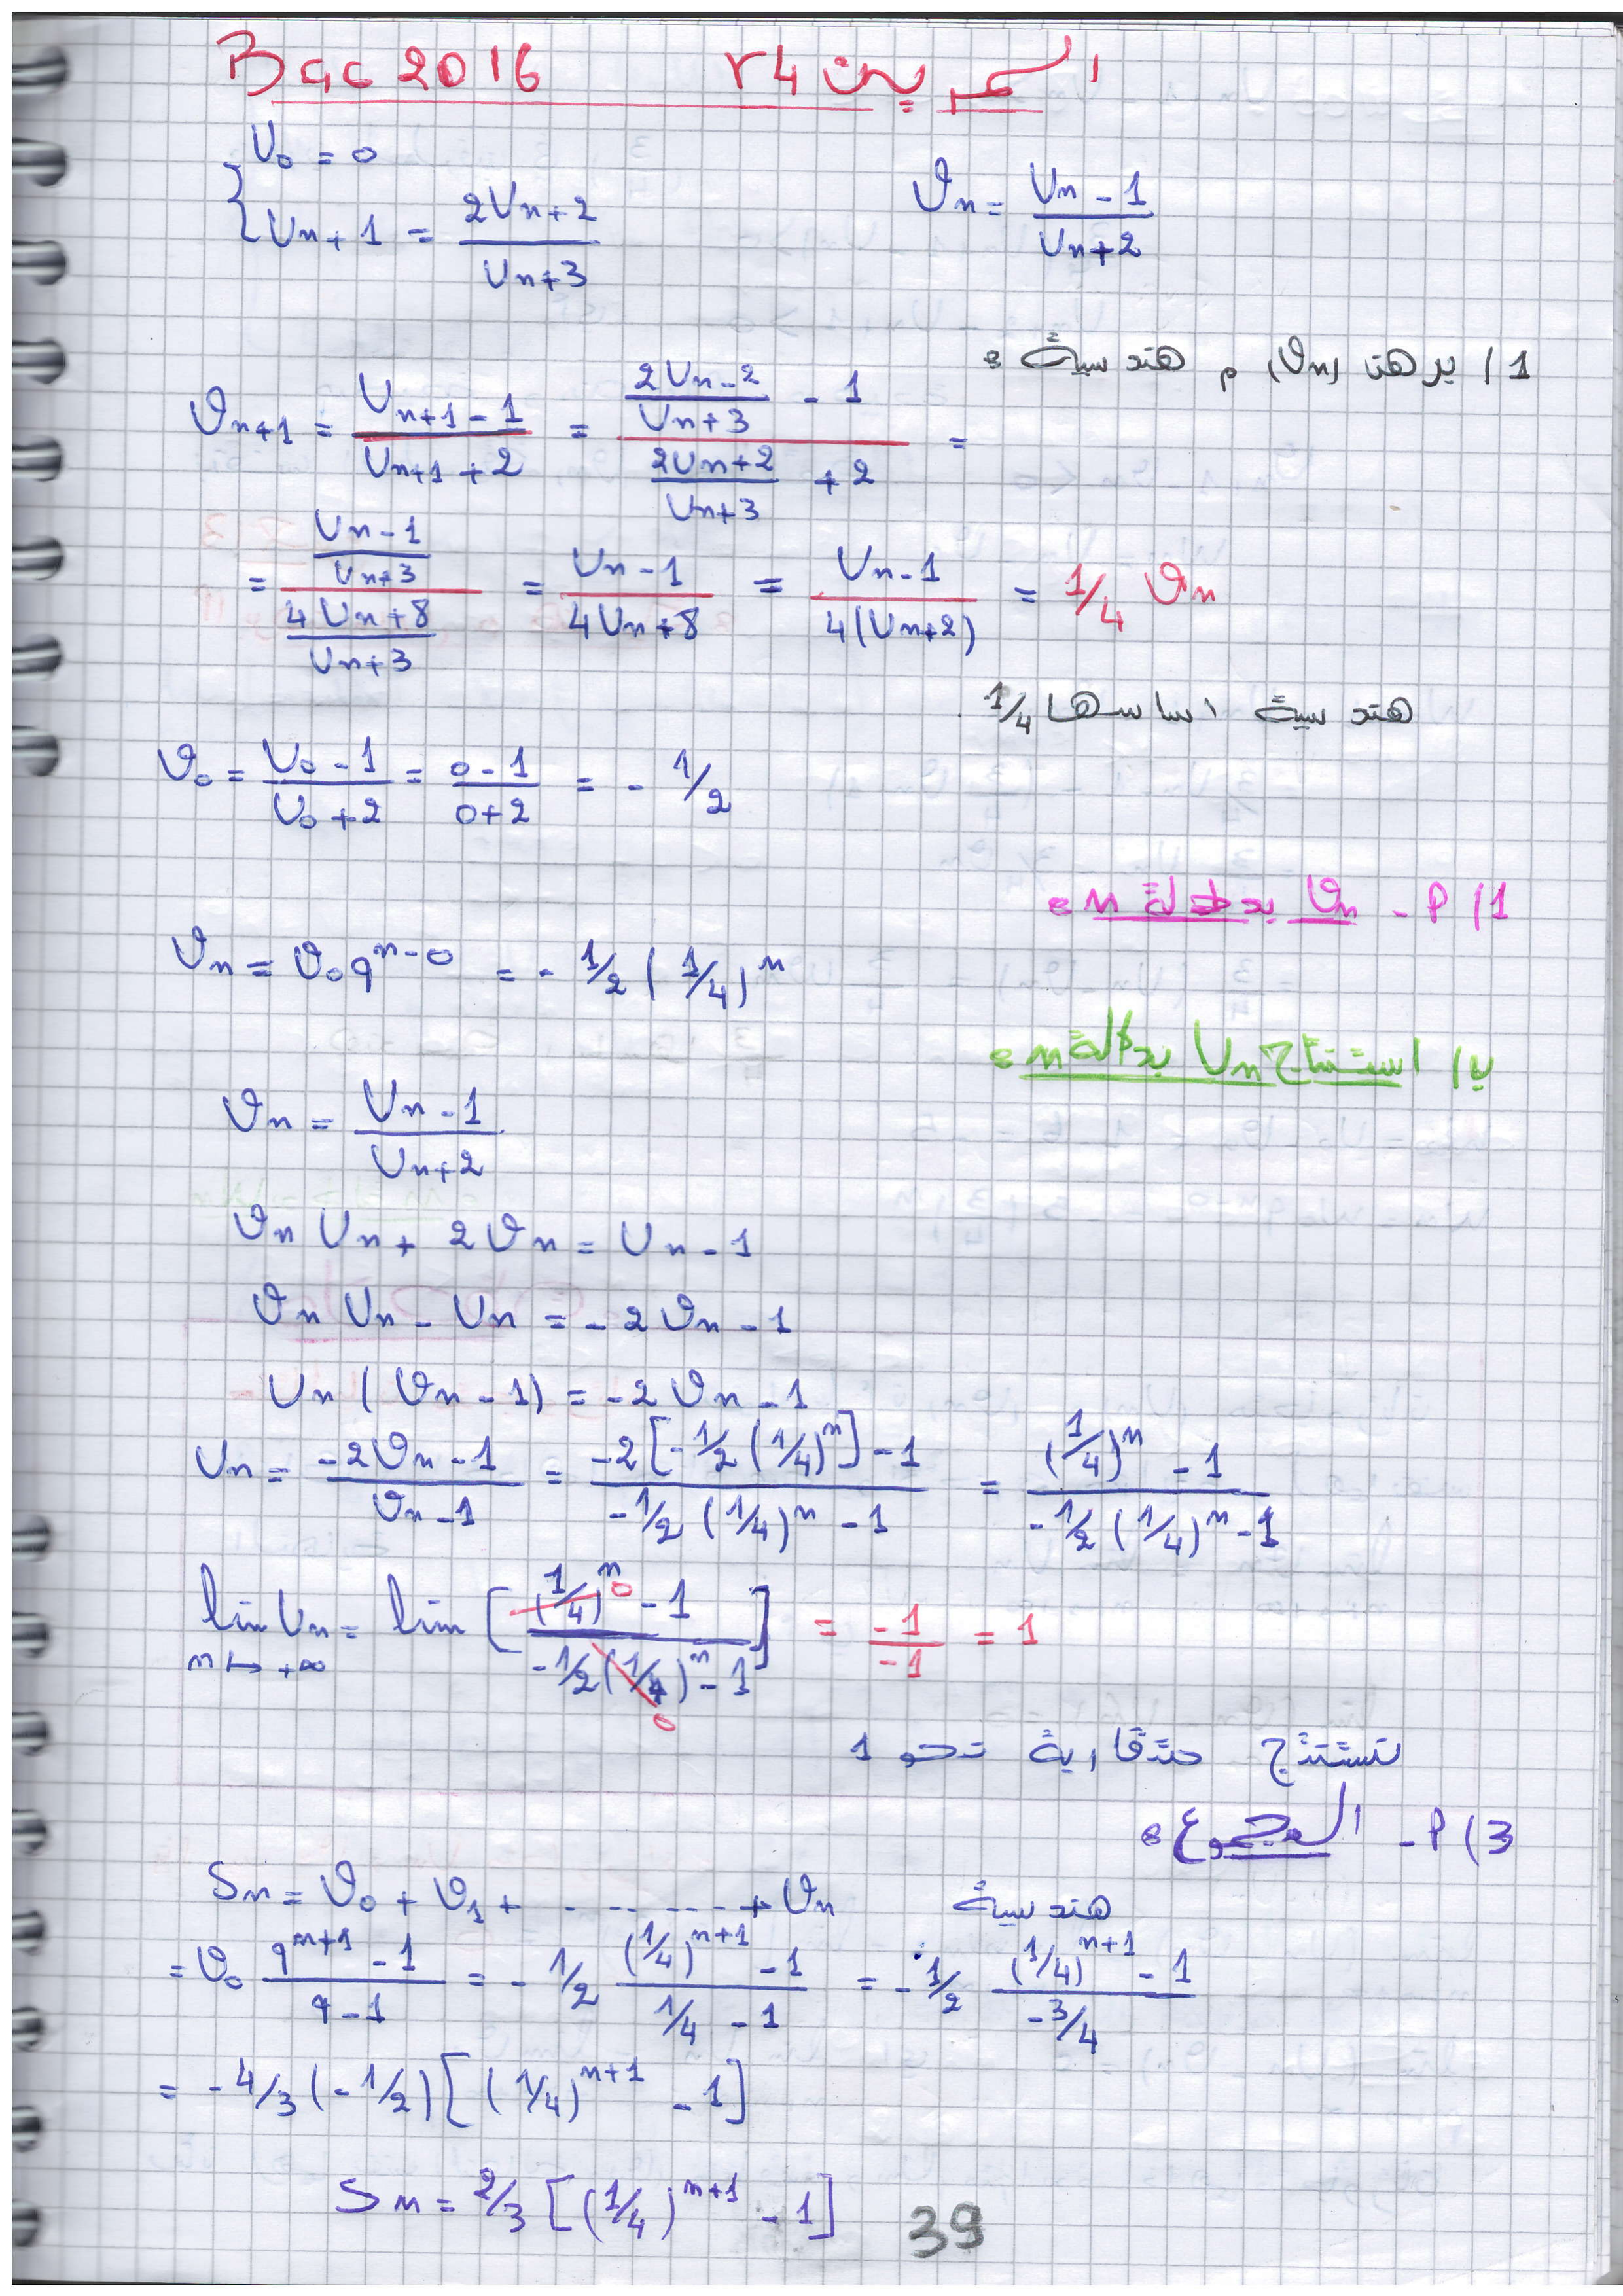 Bac 2016 التمرين 24
{ U₀ = 0
Uₙ₊₁ = (2Uₙ+2)/(Uₙ+3)
𝒱ₙ = (Uₙ-1)/(Uₙ+2)
1/ برهن (𝒱ₙ) م هندسية :
𝒱ₙ₊₁ = (Uₙ₊₁ - 1)/(Uₙ₊₁ + 2) = ((2Uₙ-2)/(Uₙ+3) - 1)/((2Uₙ+2)/(Uₙ+3) + 2) =
= ((Uₙ-1)/(Uₙ+3))/((4Uₙ+8)/(Uₙ+3)) = (Uₙ-1)/(4Uₙ+8) = (Uₙ-1)/(4(Uₙ+2)) = 1/4 𝒱ₙ
هندسية اساسها 1/4
𝒱₀ = (U₀-1)/(U₀+2) = (0-1)/(0+2) = - 1/2
1/ م - 𝒱ₙ بدلالة n :
𝒱ₙ = 𝒱₀ qⁿ⁻⁰ = - 1/2 (1/4)ⁿ
ب/ استنتاج Uₙ بدلالة n :
𝒱ₙ = (Uₙ-1)/(Uₙ+2)
𝒱ₙ Uₙ + 2𝒱ₙ = Uₙ - 1
𝒱ₙ Uₙ - Uₙ = -2𝒱ₙ - 1
Uₙ (𝒱ₙ - 1) = -2𝒱ₙ - 1
Uₙ = (-2𝒱ₙ-1)/(𝒱ₙ-1) = (-2[-1/2(1/4)ⁿ]-1)/(-1/2(1/4)ⁿ-1) = ((1/4)ⁿ-1)/(-1/2(1/4)ⁿ-1)
lim Uₙ = lim [((1/4)ⁿ-1)/(-1/2(1/4)ⁿ-1)] = -1/-1 = 1
n ↦ +∞
0
0
نستنتج متقاربة نحو 1
3) م - المجموع :
Sₙ = 𝒱₀ + 𝒱₁ + ........ + 𝒱ₙ هندسية
= 𝒱₀ (qⁿ⁺¹-1)/(q-1) = - 1/2 ((1/4)ⁿ⁺¹-1)/(1/4-1) = - 1/2 ((1/4)ⁿ⁺¹-1)/(-3/4)
= -4/3(-1/2)[(1/4)ⁿ⁺¹ - 1]
Sₙ = 2/3 [(1/4)ⁿ⁺¹ - 1]
39